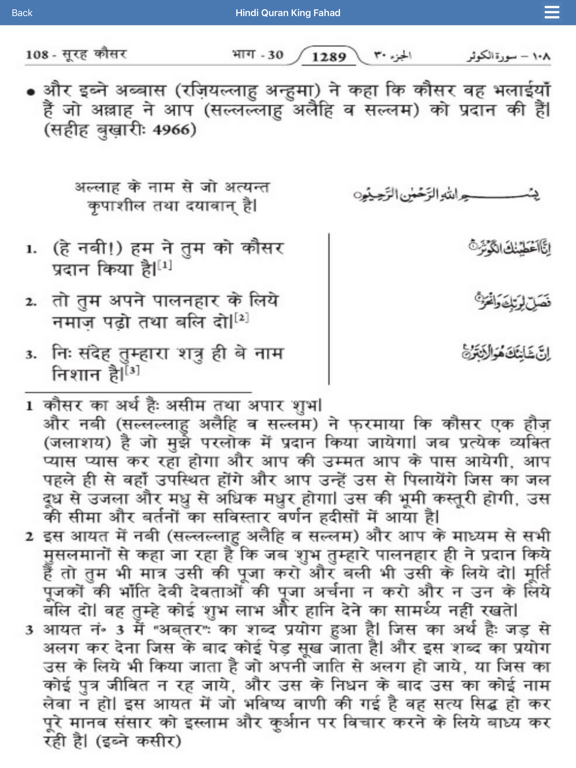 Back
Hindi Quran King Fahad
108 - सूरह कौसर भाग - 30 1289 الجزء ٣٠ ١٠٨ – سورة الكوثر
• और इब्ने अब्बास (रज़ियल्लाहु अन्हुमा) ने कहा कि कौसर वह भलाईयाँ
हैं जो अल्लाह ने आप (सल्लल्लाहु अलैहि व सल्लम) को प्रदान की हैं|
(सहीह बुख़ारीः 4966)
अल्लाह के नाम से जो अत्यन्त
कृपाशील तथा दयावान् है|
بِسْمِ اللهِ الرَّحْمٰنِ الرَّحِيْمِ
1. (हे नबी!) हम ने तुम को कौसर
प्रदान किया है|[1]
اِنَّآ اَعْطَيْنٰكَ الْكَوْثَرَ
2. तो तुम अपने पालनहार के लिये
नमाज़ पढ़ो तथा बलि दो|[2]
فَصَلِّ لِرَبِّكَ وَانْحَرْ
3. निः संदेह तुम्हारा शत्रु ही बे नाम
निशान है|[3]
اِنَّ شَانِئَكَ هُوَ الْاَبْتَرُ
1 कौसर का अर्थ हैः असीम तथा अपार शुभ|
और नबी (सल्लल्लाहु अलैहि व सल्लम) ने फ़रमाया कि कौसर एक हौज़
(जलाशय) है जो मुझे परलोक में प्रदान किया जायेगा| जब प्रत्येक व्यक्ति
प्यास प्यास कर रहा होगा और आप की उम्मत आप के पास आयेगी, आप
पहले ही से वहाँ उपस्थित होंगे और आप उन्हें उस से पिलायेंगे जिस का जल
दूध से उजला और मधु से अधिक मधुर होगा| उस की भूमी कस्तूरी होगी, उस
की सीमा और बर्तनों का सविस्तार वर्णन हदीसों में आया है|
2 इस आयत में नबी (सल्लल्लाहु अलैहि व सल्लम) और आप के माध्यम से सभी
मुसलमानों से कहा जा रहा है कि जब शुभ तुम्हारे पालनहार ही ने प्रदान किये
हैं तो तुम भी मात्र उसी की पूजा करो और बली भी उसी के लिये दो| मूर्ति
पूजकों की भाँति देवी देवताओं की पूजा अर्चना न करो और न उन के लिये
बलि दो| वह तुम्हे कोई शुभ लाभ और हानि देने का सामर्थ्य नही रखते|
3 आयत नं॰ 3 में "अब्तर": का शब्द प्रयोग हुआ है| जिस का अर्थ हैः जड़ से
अलग कर देना जिस के बाद कोई पेड़ सूख जाता है| और इस शब्द का प्रयोग
उस के लिये भी किया जाता है जो अपनी जाति से अलग हो जाये, या जिस का
कोई पुत्र जीवित न रह जाये, और उस के निधन के बाद उस का कोई नाम
लेवा न हो| इस आयत में जो भविष्य वाणी की गई है वह सत्य सिद्ध हो कर
पूरे मानव संसार को इस्लाम और कुर्आन पर विचार करने के लिये बाध्य कर
रही है| (इब्ने कसीर)